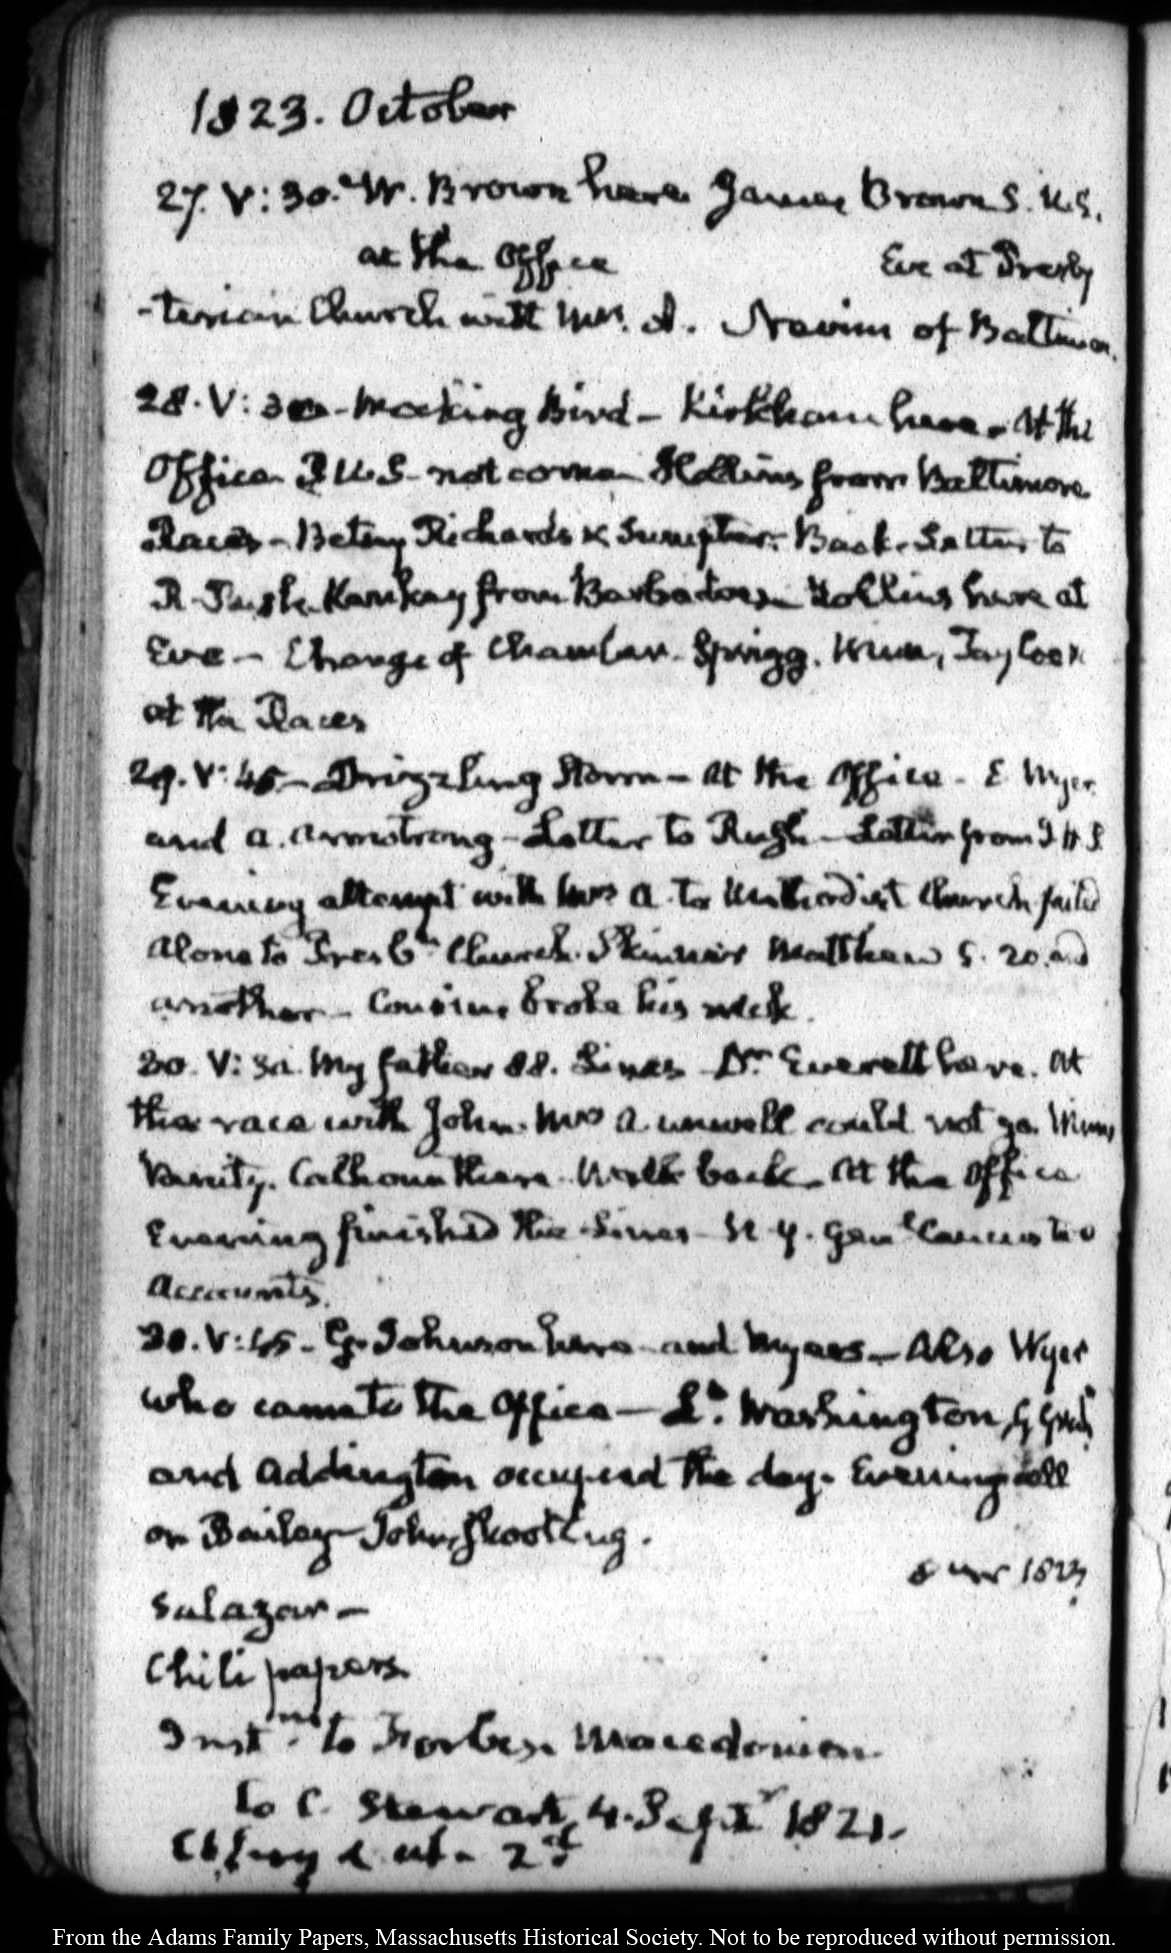 1823. October
27. V:30. W. Brown here James Brown S. U.S.
at the Office Eve at Presby
-terian Church with Mrs. A. Nevins of Baltimore.
28. V:30 - Mocking Bird - Kirkham here. At the
Office P U.S. not come Hollins from Baltimore
Races - Betsey Richards & Sumpter. Back. Letter to
R. Rush. from Barbadoes - Hollins here at
Eve - Change of Chamber. Sprigg. Winn, Tayloe
at the Races
29. V:45 - Drizzling Storm - At the Office - E Wyer
and A. Armstrong - Letter to Rush - Letter from
Evening attempt with Mrs A. to Methodist Church failed
Alone to Presbn. Church. Skinner Matthew 5. 20. and
another - Cousin broke his neck.
30. V:30. My father 88. Lines Dr. Everett here. At
the race with John. Mrs A unwell could not go.
Vanity. Calhoun there. Walk back. At the Office
Evening finished the Lines N. Y. Genl Caucus two
Accounts.
30. V:45 - G. Johnson here and Myers - Also Wyer
who came to the Office - Lt. Washington, G Graham
and Addington occupied the day. Evening call
on Bailey - John, shooting.
1823
Salazar -
Chili papers.
Inst.ns to Forbes. Macedonian
to C. Stewart, 4. Sept 1821.
2d